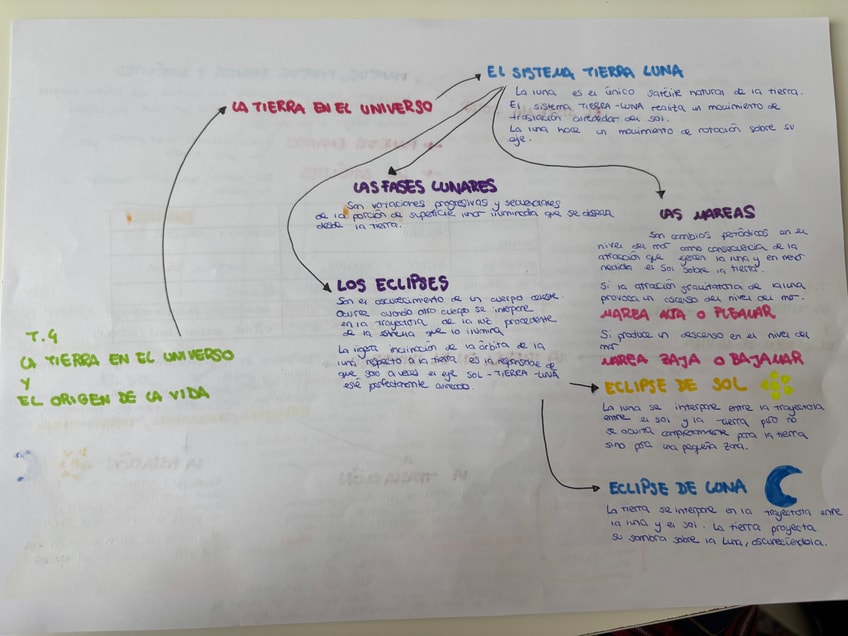 T.4
LA TIERRA EN EL UNIVERSO
Y
EL ORIGEN DE LA VIDA
LA TIERRA EN EL UNIVERSO
EL SISTEMA TIERRA LUNA
La luna es el único satélite natural de la tierra.
El sistema TIERRA-LUNA realiza un movimiento de
traslación alrededor del sol.
La luna hace un movimiento de rotación sobre su
eje.
LAS FASES LUNARES
Son variaciones progresivas y secuenciales
de la porción de superficie lunar iluminada que se observa
desde la tierra.
LOS ECLIPSES
Son el oscurecimiento de un cuerpo celeste.
Ocurre cuando otro cuerpo se interpone
en la trayectoria de la luz procedente
de la estrella que lo ilumina
La ligera inclinación de la órbita de la
luna respecto a la tierra es la responsable de
que solo a veces el eje SOL-TIERRA-LUNA
esté perfectamente alineado.
LAS MAREAS
Son cambios periódicos en el
nivel del mar como consecuencia de la
atracción que ejercen la luna y en menor
medida el sol sobre la tierra.
Si la atracción gravitatoria de la luna
provoca un ascenso del nivel del mar.
MAREA ALTA O PLEAMAR
Si produce un descenso en el nivel del
mar
MAREA BAJA O BAJAMAR
ECLIPSE DE SOL
La luna se interpone entre la trayectoria
entre el sol y la tierra pero no
se oculta completamente para la tierra
sino para una pequeña zona.
ECLIPSE DE LUNA
La tierra se interpone en la trayectoria entre
la luna y el sol. La tierra proyecta
su sombra sobre la luna, oscureciéndola.